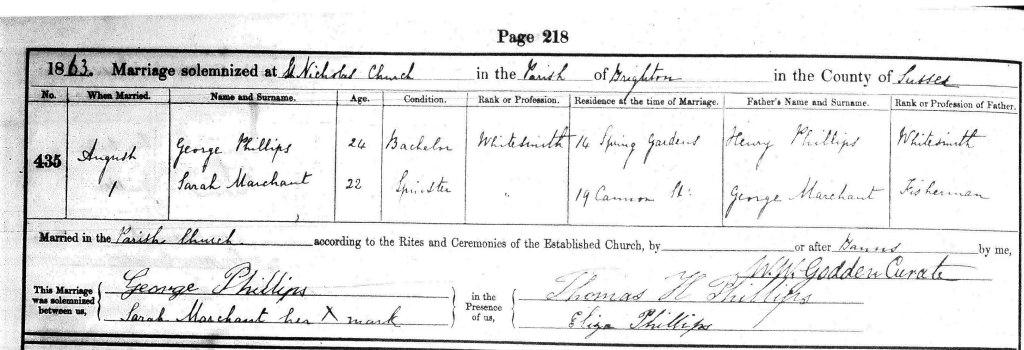 Page 218
1863. Marriage solemnized at St Nicholas Church in the Parish of Brighton in the County of Sussex
No. When Married. Name and Surname. Age. Condition. Rank or Profession. Residence at the time of Marriage. Father's Name and Surname. Rank or Profession of Father.
435 August 1 George Phillips 24 Bachelor Whitesmith 14 Spring Gardens Henry Phillips Whitesmith
Sarah Marchant 22 Spinster " 19 Cannon St: George Marchant Fisherman
Married in the Parish Church according to the Rites and Ceremonies of the Established Church, by or after Banns by me,
W. W. Godden Curate
This Marriage was solemnized between us, George Phillips in the Presence of us, Thomas H Phillips
Sarah Marchant her X mark Eliza Phillips